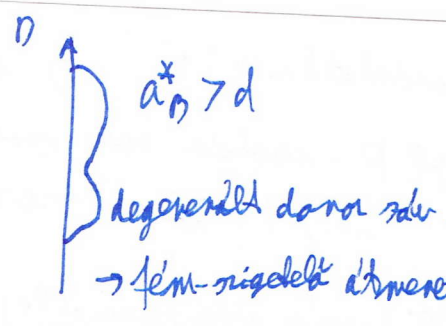 n
a*_B > d
degenerált donor sáv
→ fém-szigetelő átmenet